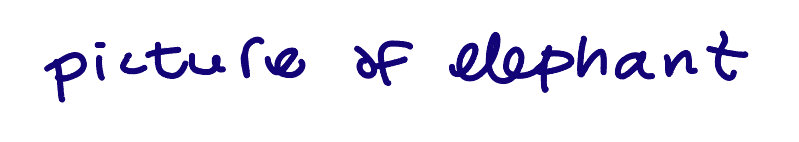 picture of elephant